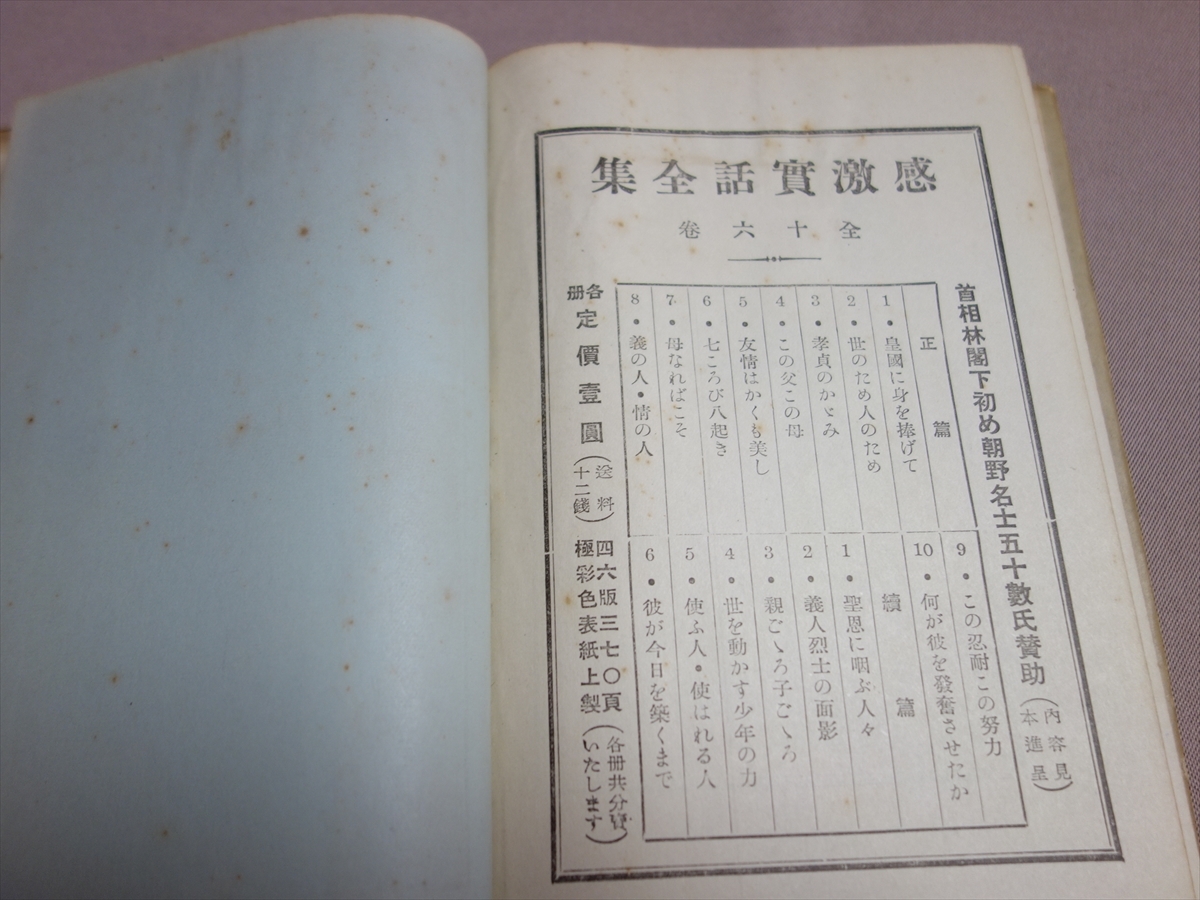 感激實話全集
全十六卷
首相林閣下初め朝野名士五十數氏贊助（內容見本進呈）
正篇
1・皇國に身を捧げて
2・世のため人のため
3・孝貞のかゞみ
4・この父この母
5・友情はかくも美し
6・七ころび八起き
7・母なればこそ
8・義の人・情の人
9・この忍耐この努力
10・何が彼を發奮させたか
續篇
1・聖恩に咽ぶ人々
2・義人烈士の面影
3・親ごゝろ子ごゝろ
4・世を動かす少年の力
5・使ふ人・使はれる人
6・彼が今日を築くまで
各册定價壹圓（送料十二錢）
四六版三七〇頁
極彩色表紙上製
（各册共分賣いたします）